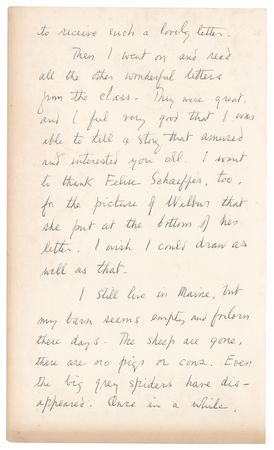 to receive such a lovely letter.
Then I went on and read
all the other wonderful letters
from the class. They were great,
and I feel very good that I was
able to tell a story that amused
and interested you all. I want
to thank Felise Schaeffer, too,
for the picture of Wilbur that
she put at the bottom of her
letter. I wish I could draw as
well as that.
I still live in Maine, but
my barn seems empty and forlorn
these days. The sheep are gone,
there are no pigs or cows. Even
the big grey spiders have dis-
appeared. Once in a while,